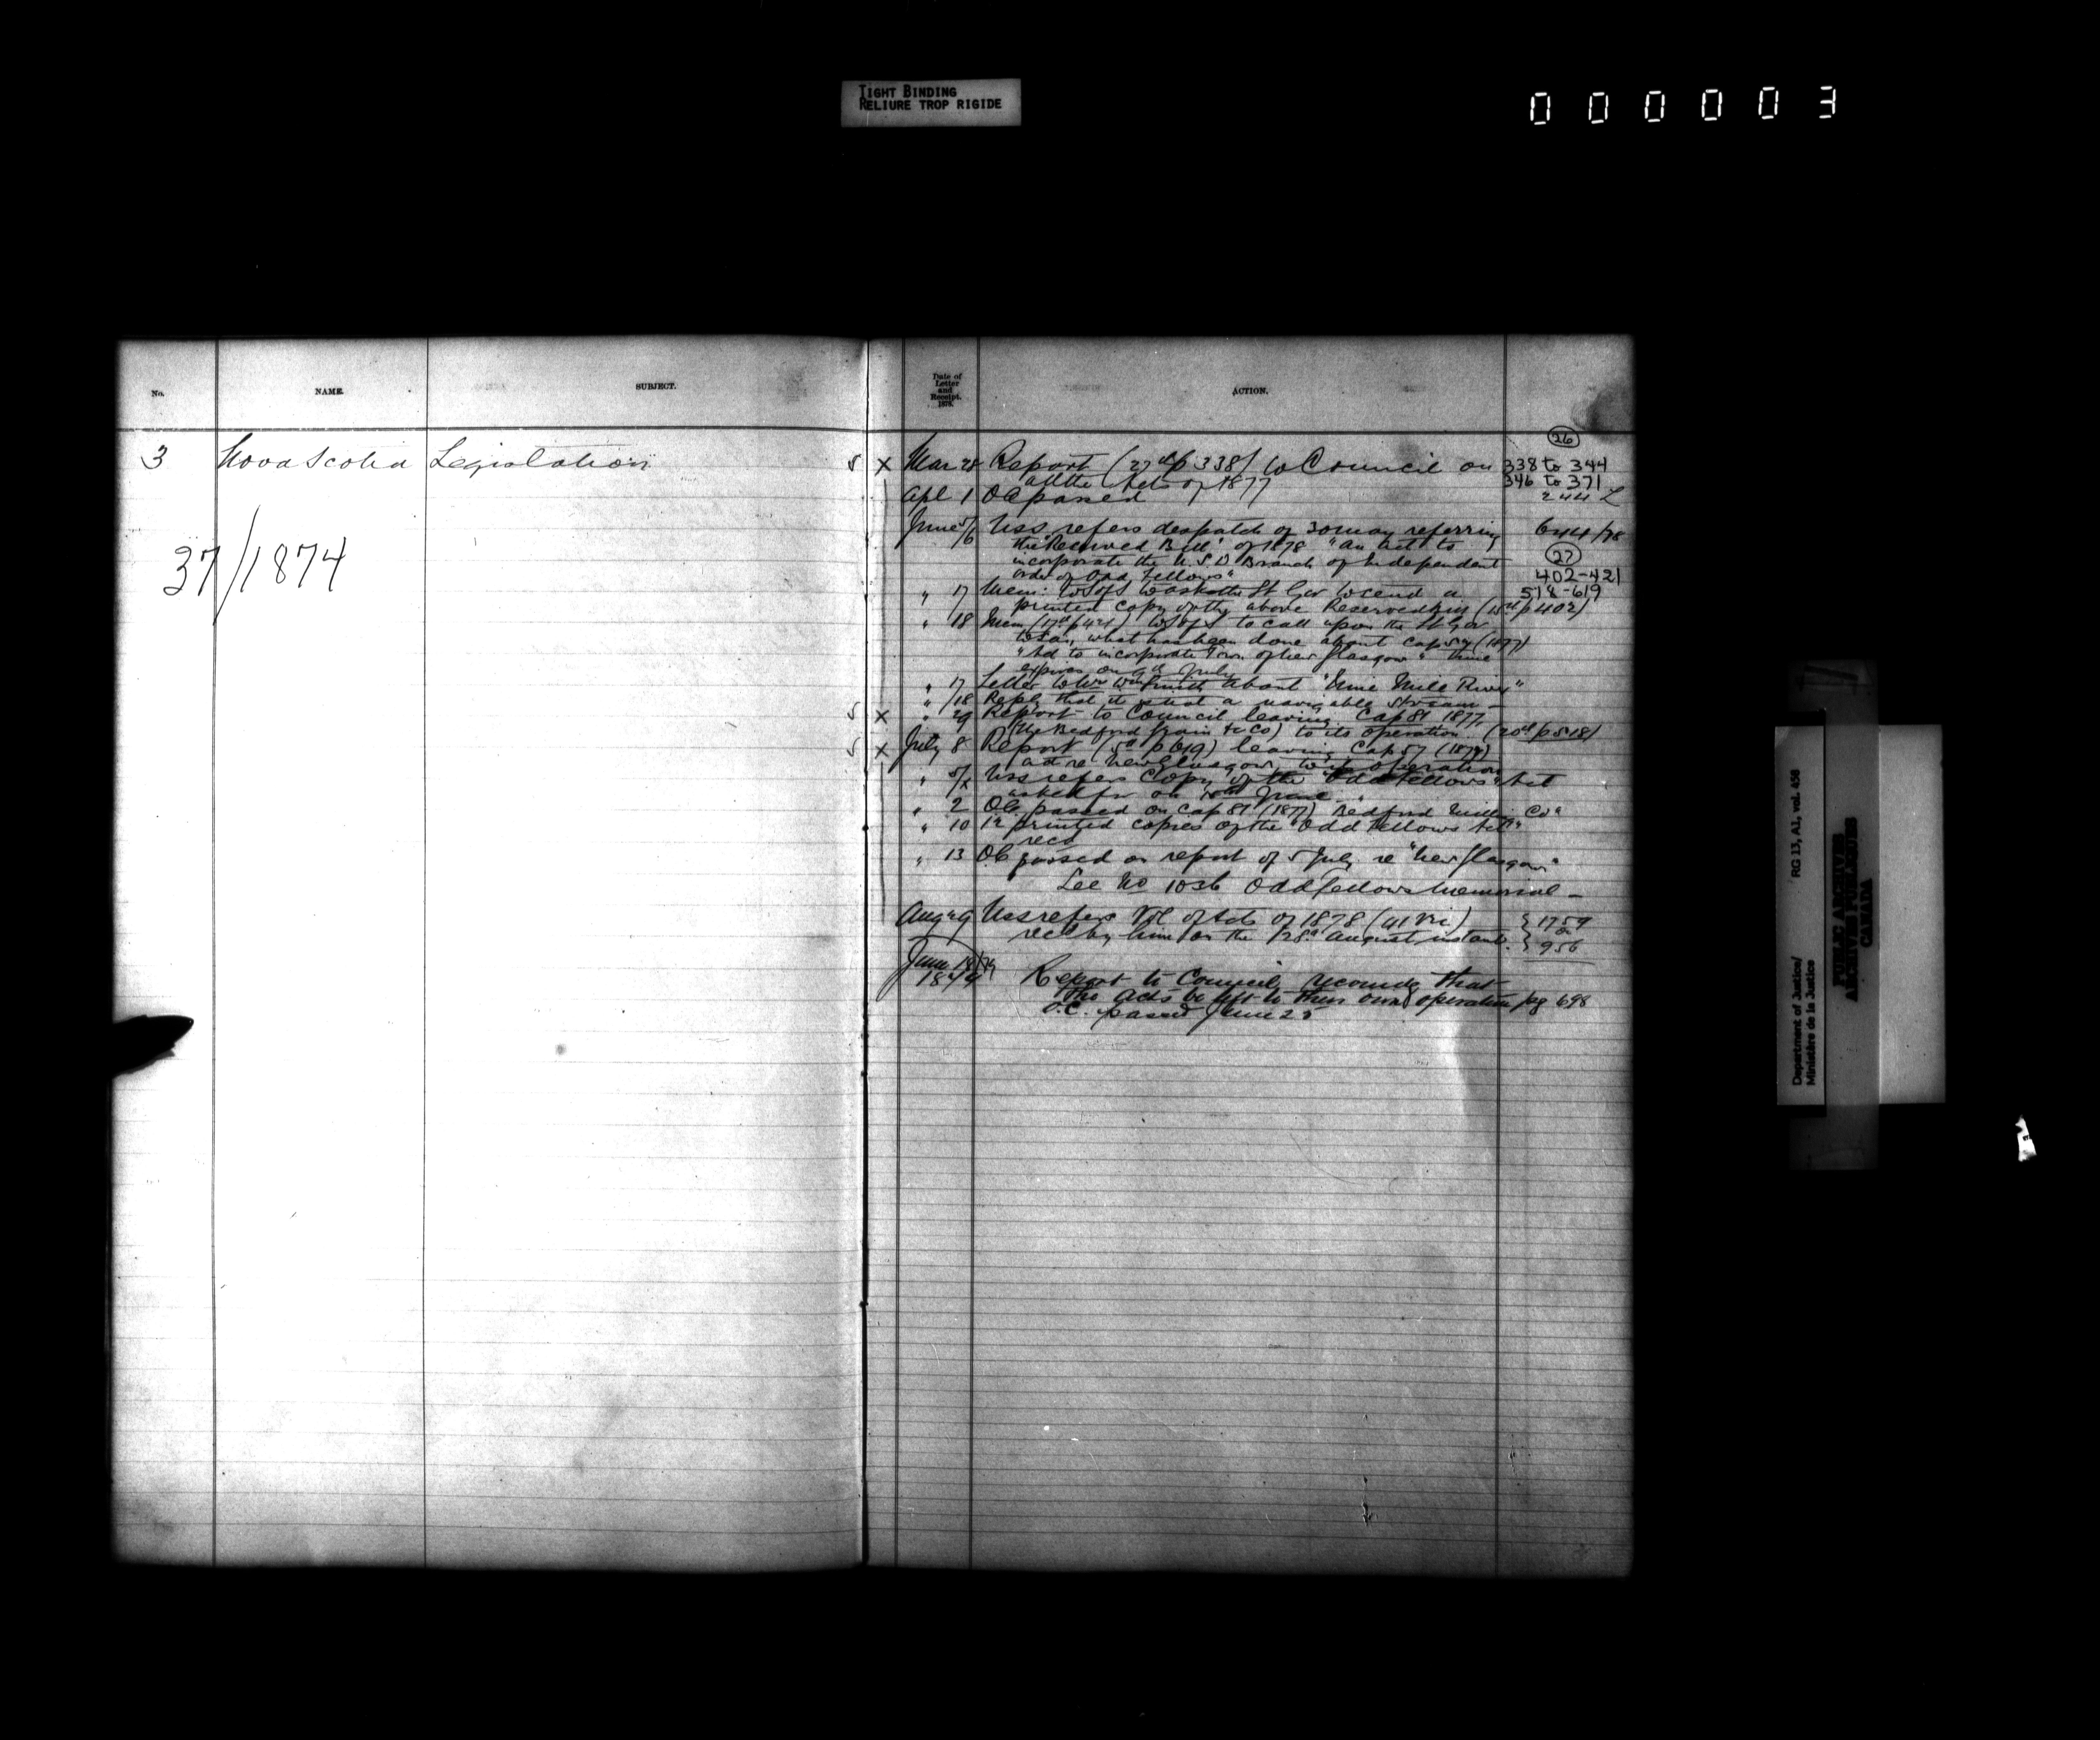 TIGHT BINDING
RELIURE TROP RIGIDE
000003
No.
NAME.
SUBJECT.
Date of
Letter
and
Receipt.
1878.
ACTION.
3 Nova Scotia Legislation
37/1874
26
5 x Mar 28 Report (27th p 338) to Council on 338 to 344
all the Acts of 1877 346 to 371
Apl 1 OC passed 244 L
June 5/6 USS refers despatch of 30 May referring 644/78
the "Reserved Bill" of 1878 "an Act to 27
incorporate the U.S.D Branch of Independent
order of Odd Fellows" 402-421
" 17 Mem: to S of S to ask the Lt Gov to send a 518-619
printed copy of the above Reserved Bill (15th p 402)
" 18 Mem (17th p 421) to S of S to call upon the Lt Gov
to say what has been done about Cap 57 (1877)
"Act to incorporate Town of New Glasgow" time
expires on July
" 17 Letter to Smith about "Nine Mile River"
" /18 Reply that it is not a navigable stream -
5 x " 29 Report to Council leaving Cap 81 1877
(the Bedford Co) to its operation (20th p 518)
5 x July 8 Report (5th p 619) leaving Cap 57 (1877)
act re New Glasgow to its operation
" USS refers Copy of the "Odd Fellows" Act
asked for on June
" 2 OC. passed on cap 81 (1877) Bedford Milling Co"
" 10 12 printed copies of the "Odd Fellows Act"
recd
" 13 OC passed on report of 5 July re "New Glasgow"
See No 1036 Oddfellows Memorial -
Aug 29 USS refers Vol of Acts of 1878 (41 Vic) 1759
recd by him on the 28th August instant. 956
June 18/79
1879 Report to Council recomdg that
the Acts be left to their own operation pg 698
O.C. passed June 25
Department of Justice/
Ministère de la Justice
RG 13, A1, vol. 456
PUBLIC ARCHIVES
ARCHIVES PUBLIQUES
CANADA